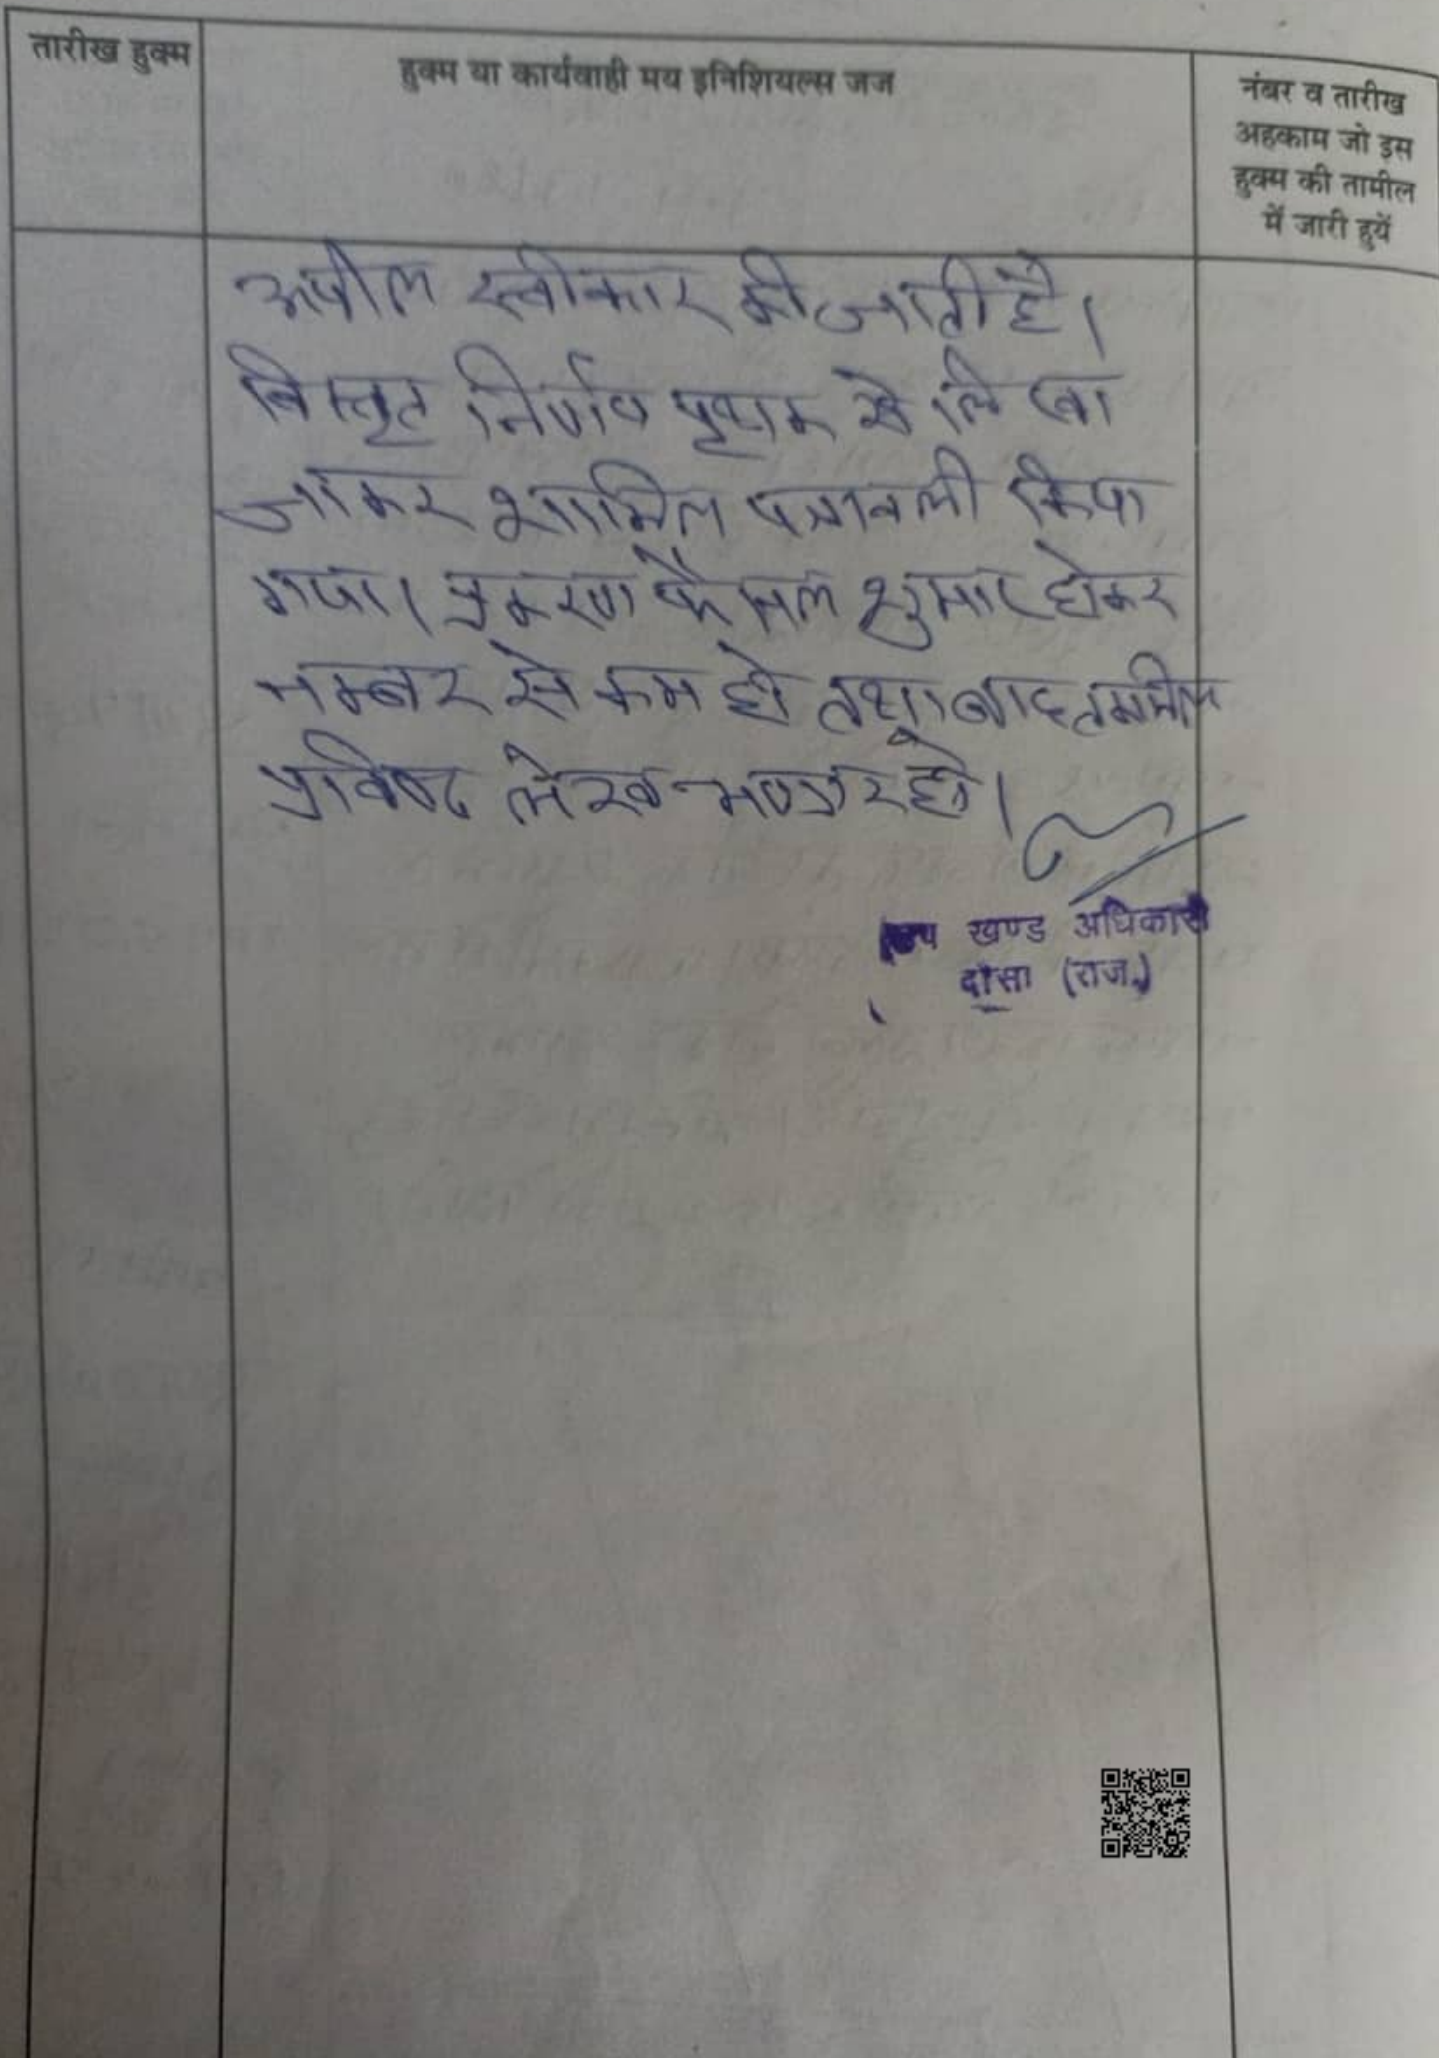 तारीख हुक्म
हुक्म या कार्यवाही मय इनिशियल्स जज
नंबर व तारीख
अहकाम जो इस
हुक्म की तामील
में जारी हुयें
अपील स्वीकार की जाती है।
विस्तृत निर्णय पृथक से लिखा
जाकर शामिल पत्रावली किया
गया। प्रकरण फैसल शुमार होकर
नम्बर से कम हो तथा बाद तकमील
प्रविष्ट लेख भण्डार हो।
उप खण्ड अधिकारी
दौसा (राज.)